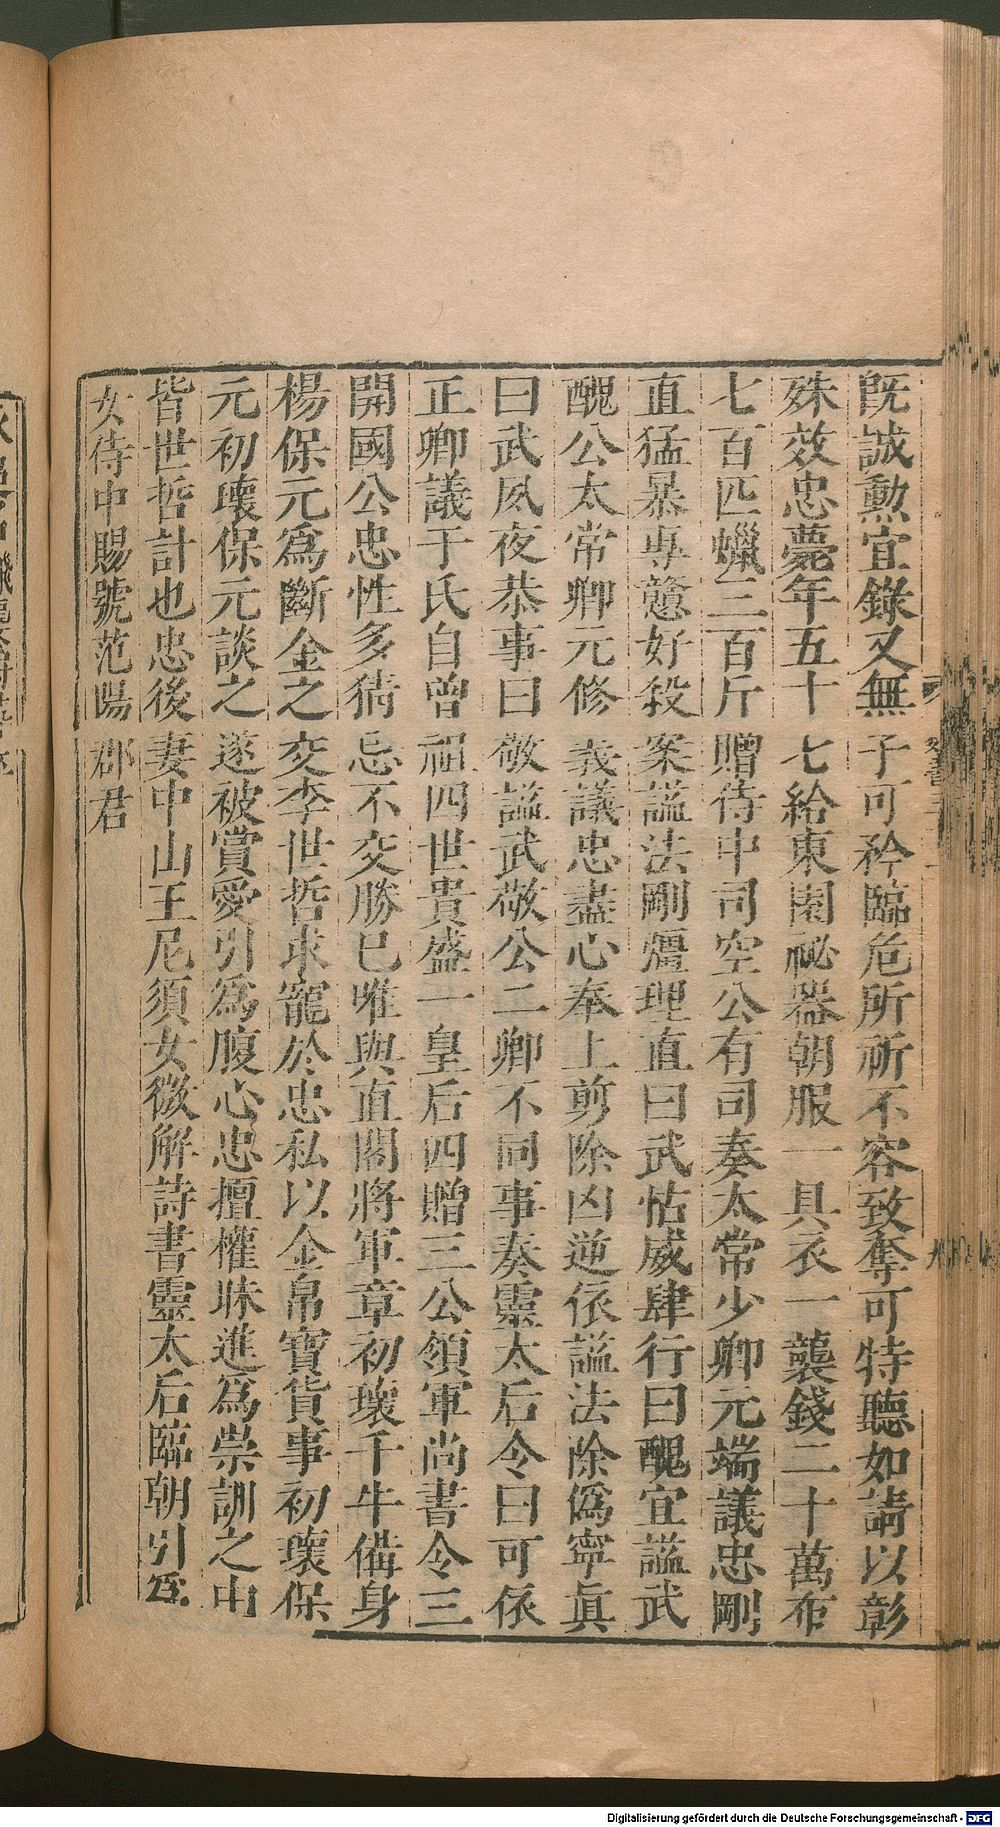 旣誠勳宜錄又無子可矜臨危所祈不容致奪可特聽如請以彰
殊效忠薨年五十七給東園祕器朝服一具衣一襲錢二十萬布
七百匹蠟三百斤贈侍中司空公有司奏太常少卿元端議忠剛
直猛暴專戇好殺案謚法剛彊理直曰武怙威肆行曰醜宜謚武
醜公太常卿元修義議忠盡心奉上剪除凶逆依謚法除僞寧眞
曰武夙夜恭事曰敬謚武敬公二卿不同事奏靈太后令曰可依
正卿議于氏自曾祖四世貴盛一皇后四贈三公領軍尚書令三
開國公忠性多猜忌不交勝已唯與直閣將軍章初壞千牛備身
楊保元爲斷金之交李世哲求寵於忠私以金帛寶貨事初壞保
元初壞保元談之遂被賞愛引爲腹心忠擅權昧進爲崇訓之由
皆世哲計也忠後妻中山王尼須女微解詩書靈太后臨朝引爲
女侍中賜號范陽郡君
Digitalisierung gefördert durch die Deutsche Forschungsgemeinschaft - DFG